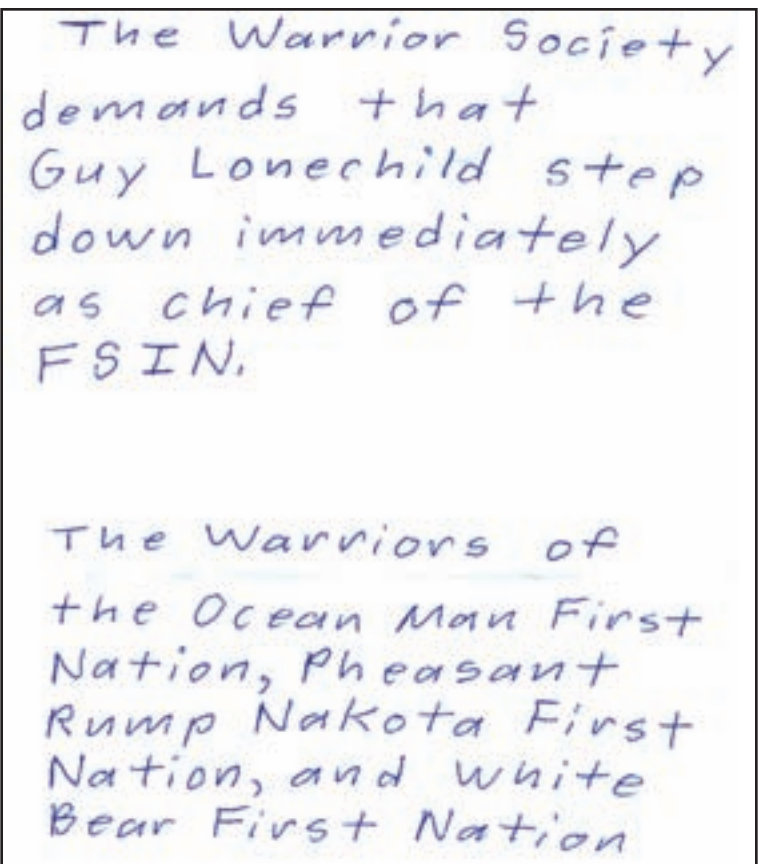 The Warrior Society
demands that
Guy Lonechild step
down immediately
as chief of the
FSIN.
The Warriors of
the Ocean Man First
Nation, Pheasant
Rump Nakota First
Nation, and White
Bear First Nation